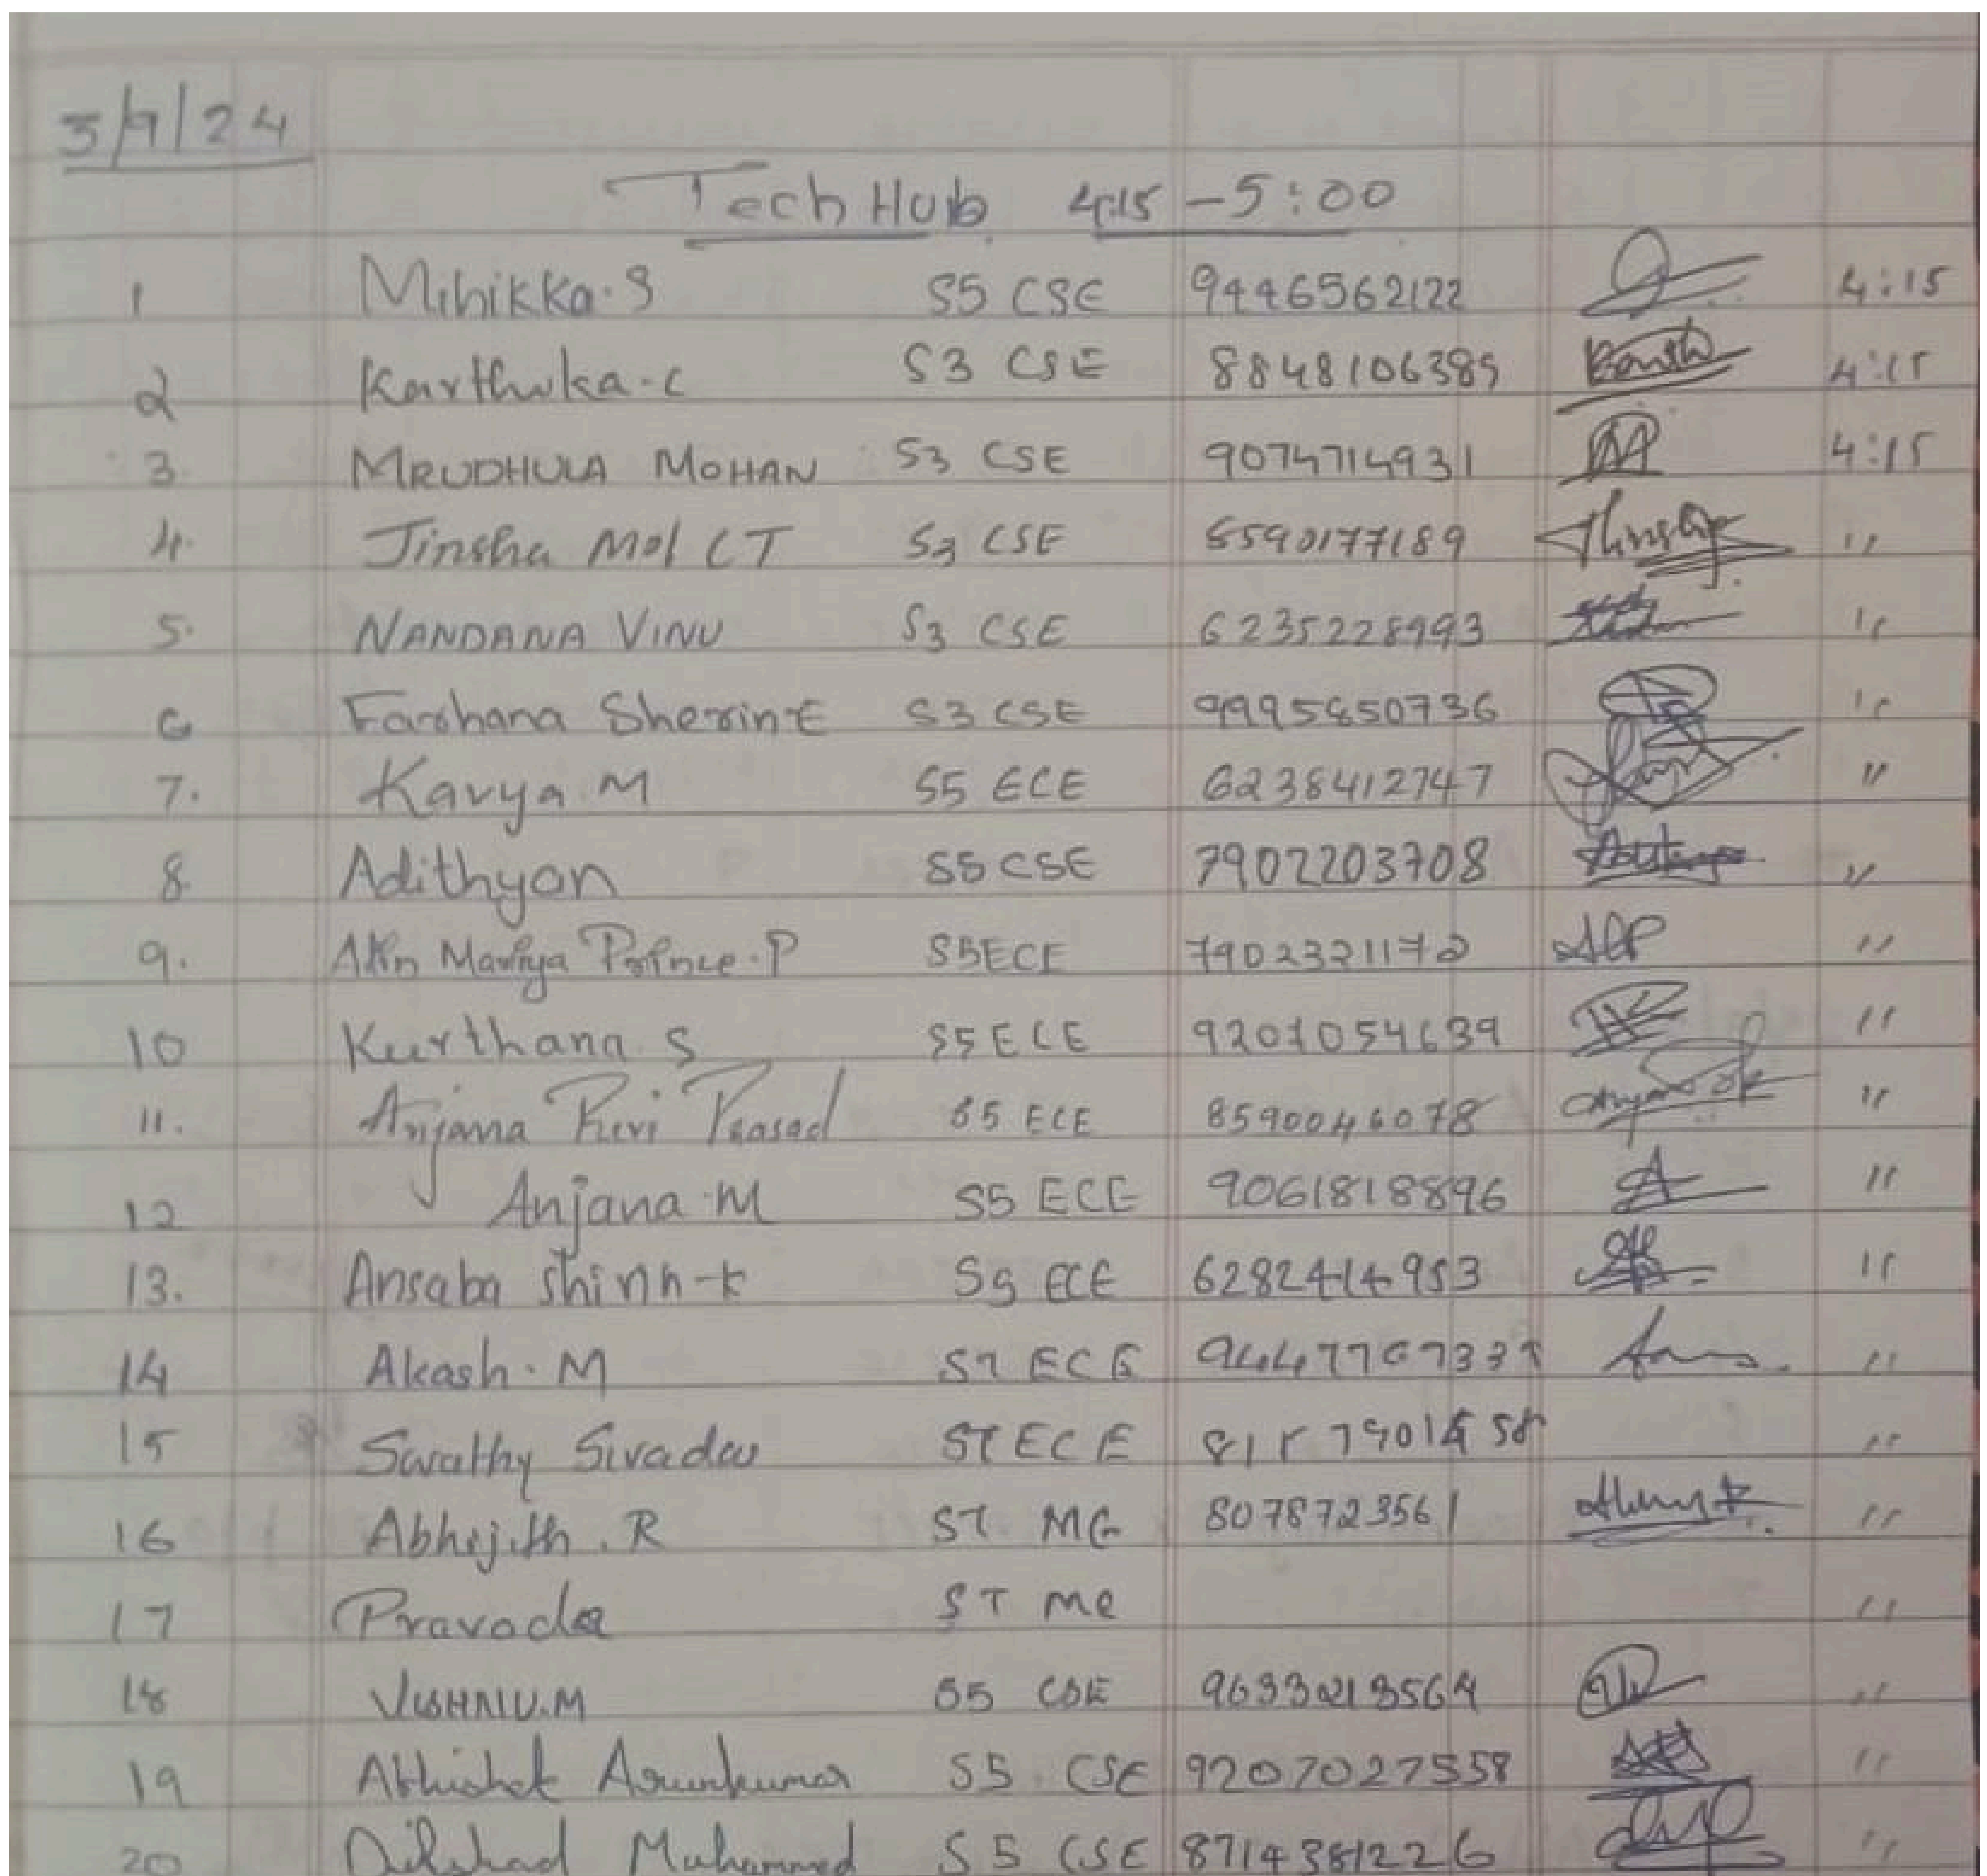 3/9/24
Tech Hub 4:15 - 5:00
1 Mihikka. S S5 CSE 9446562122 4:15
2 Karthika. C S3 CSE 8848106389 4:15
3. MRUDHULA MOHAN S3 CSE 9074714931 4:15
4. Jinsha Mol CT S3 CSE 8590177189 "
5. NANDANA VINU S3 CSE 6235228993 "
6 Farhana Sherin E S3 CSE 9995850736 "
7. Kavya M S5 ECE 6238412747 "
8. Adithyan S5 CSE 7902203708 "
9. Mariya Prince. P S5 ECE "
10 Kurthana S S5 ECE 9207054639 "
11. Anjana Ravi Prasad S5 ECE 8590046078 "
12 Anjana. M S5 ECE 9061818896 "
13. Ansaba S5 ECE 6282414953 "
14 Akash. M S7 ECE "
15 Swathy Sivadas S7 ECE "
16 Abhijith. R S7 ME 8078723561 "
17 Pravada S7 ME "
18 VISHNU.M S5 CSE 9633213564 "
19 Abhishek Arunkumar S5 CSE 9207027558 "
20 Dilshad Muhammed S5 CSE 8714381226 "